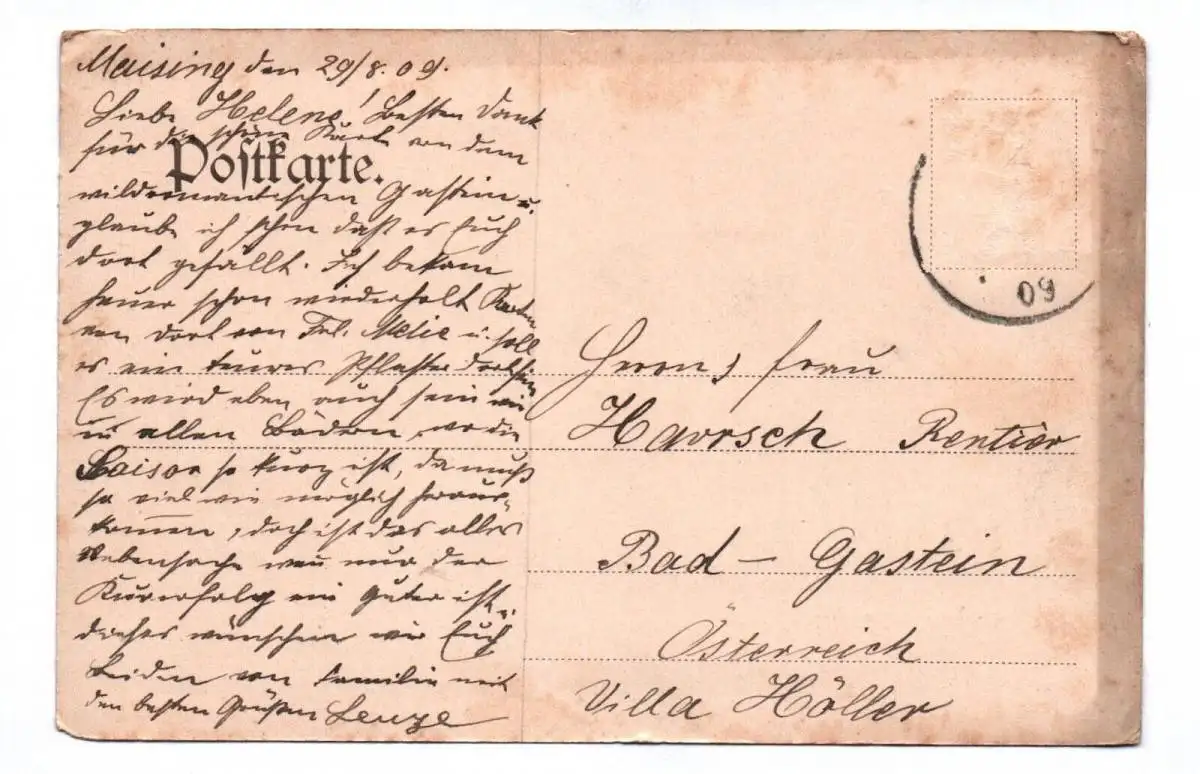 Maising den 29/8. 09.
Liebe Helene! Besten Dank
für die schöne Karte von dem
Postkarte.
wildromantischen Gastein u.
glaube ich schon daß es Euch
dort gefällt. Ich bekam
heuer schon wiederholt Karten
von dort von Frl. u. soll
es ein teures Pflaster dort sein
Es wird eben auch sein wie
in allen Bädern, wo die
Saison so kurz ist, da muß
so viel wie möglich heraus-
kommen, doch ist das alles
Nebensache wenn nur der
Kurerfolg ein guter ist u.
dieses wünschen wir Euch
beiden von Familie mit
den besten Grüßen Leuze
09
Herrn, Frau
Havrsch Rentier
Bad - Gastein
Österreich
Villa Höller